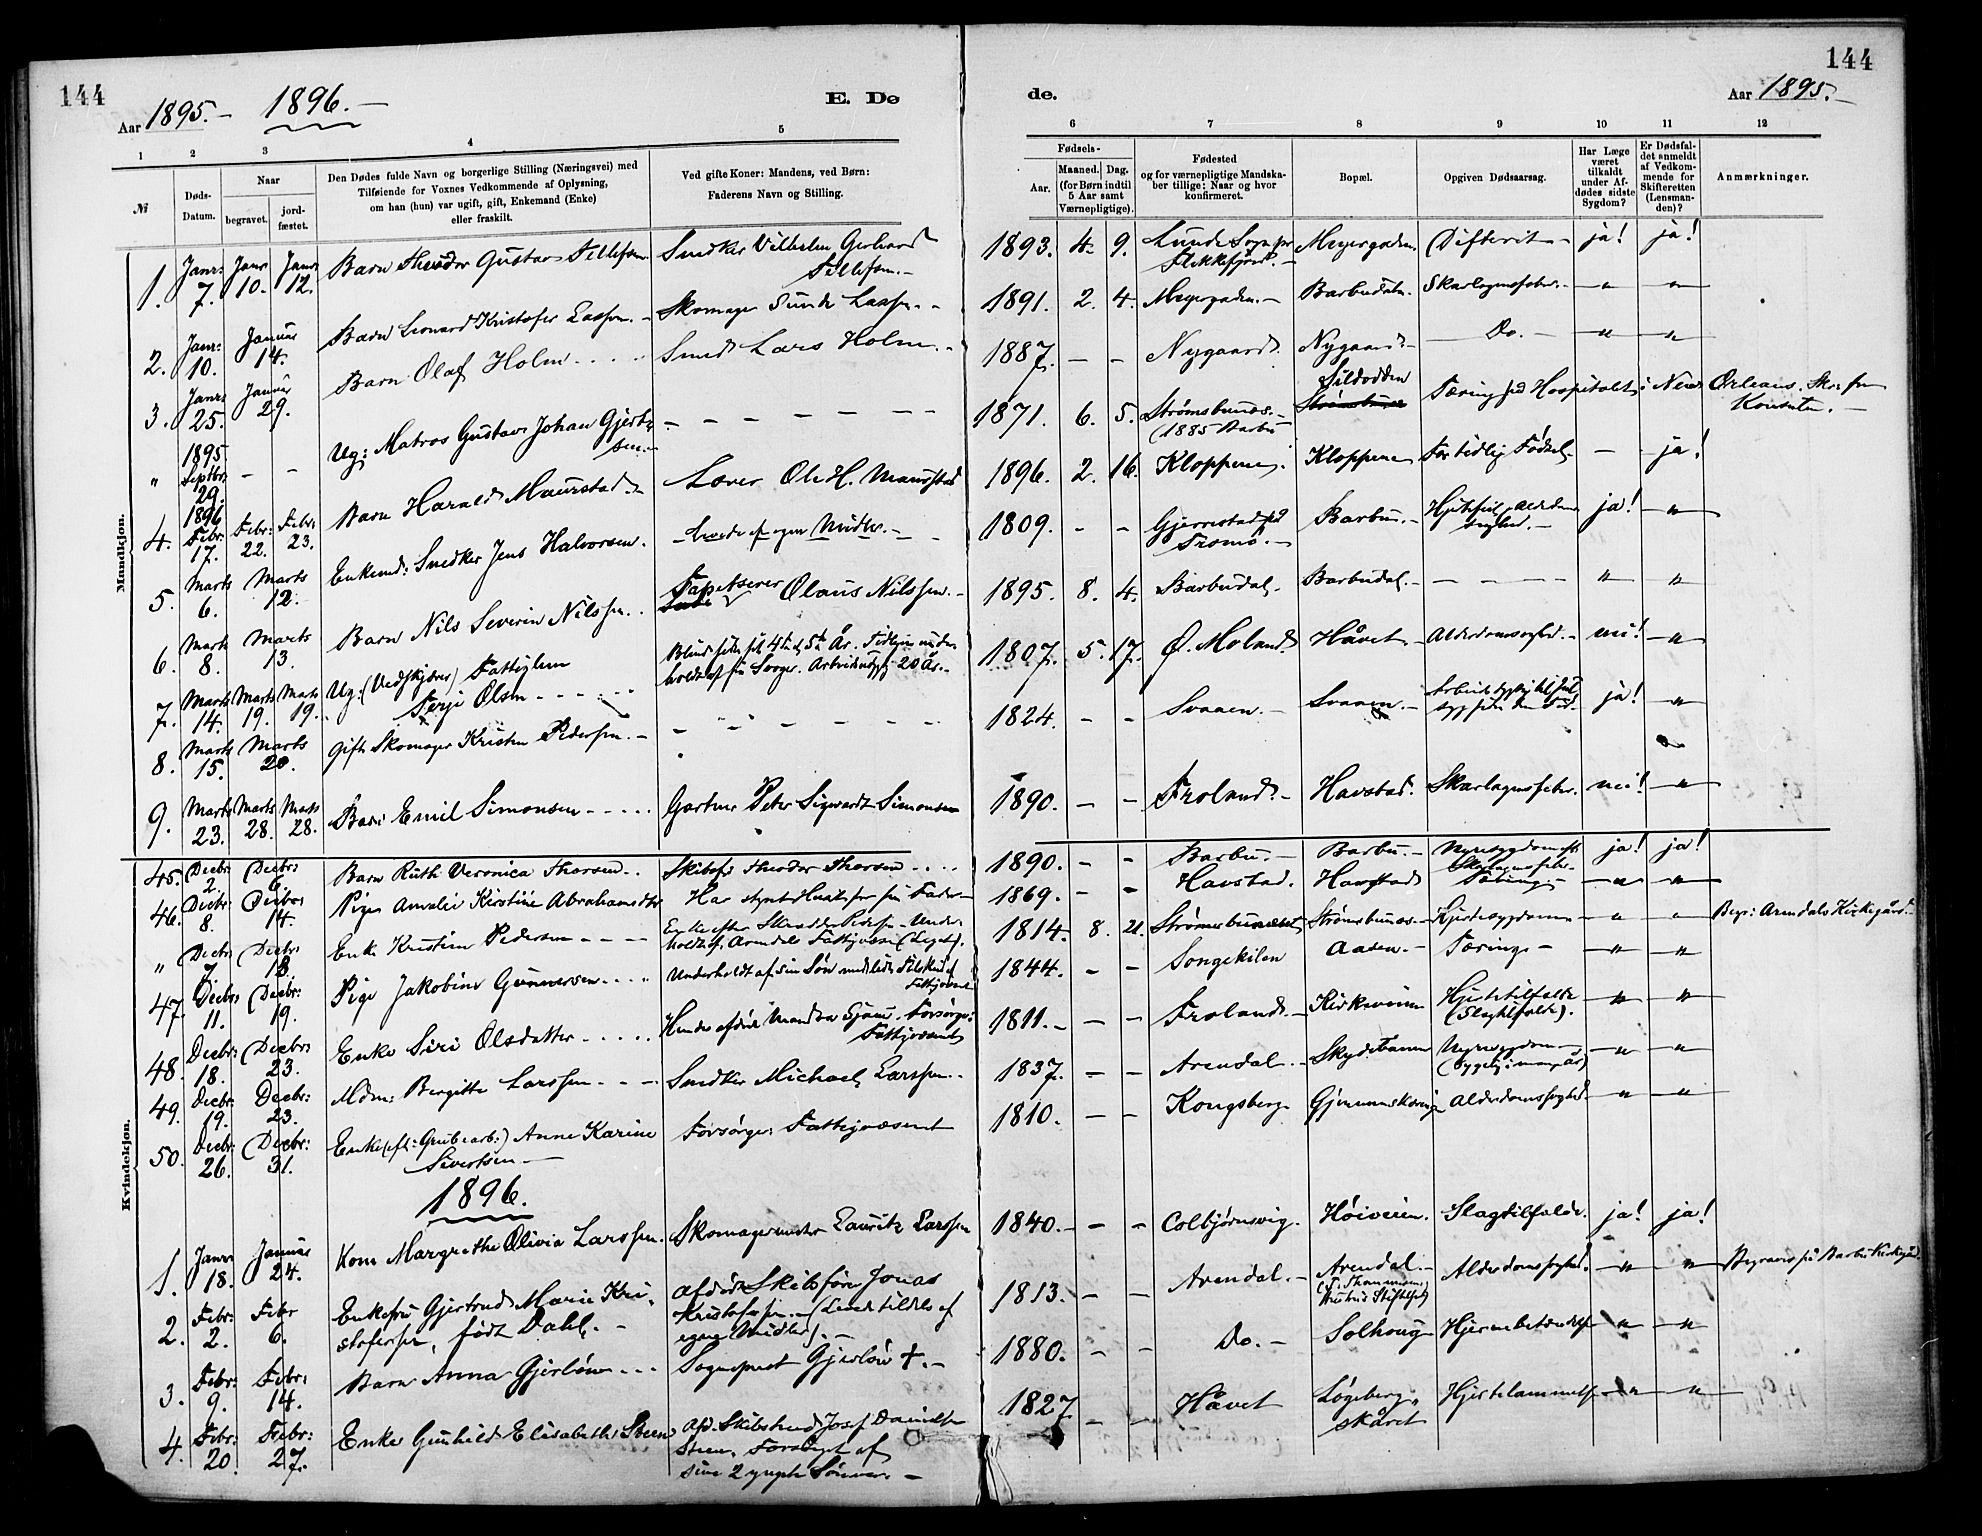 144
144
Aar 1895.- 1896.-
E. Dø
de.
Aar 1895.-
1 2 3 4 5
6 7 8 9 10 11 12
№
Døds-Datum.
Naar
begravet.
jord-fæstet.
Den Dødes fulde Navn og borgerlige Stilling (Næringsvei) med
Tilføiende for Voxnes Vedkommende af Oplysning,
om han (hun) var ugift, gift, Enkemand (Enke)
eller fraskilt.
Ved gifte Koner: Mandens, ved Børn:
Faderens Navn og Stilling.
Fødsels-
Aar.
Maaned. Dag.
(for Børn indtil
5 Aar samt
Værnepligtige).
Fødested
og for værnepligtige Mandska-
ber tillige: Naar og hvor
konfirmeret.
Bopæl.
Opgiven Dødsaarsag.
Har Læge
været
tilkaldt
under Af-
dødes sidste
Sygdom?
Er Dødsfal-
det anmeldt
af Vedkom-
mende for
Skifteretten
(Lensman-
den)?
Anmærkninger.
Mandkjøn.
1. Janr: 7. Janr 10. Janr: 12. Barn Theodor Gustav Tellefsen Snedker Vilhelm Gerhard Tellefsen.- 1893. 4. 9. Lunde Sogn pr Flekkefjord.- Meyergaden. Difterit - ja! ja!
2. Janr: 10. Januar 14. Barn Leonard Kristofer Lassen. - Skomager Sunde Lassen. - 1891. 2. 4. Meyergaden.- Barbudalen. Skarlagensfeber. - " - "
3. Janr: 25. Januar 29. Barn Olaf Holm Smed Lars Holm. - 1887. - - Nygaard. Nygaard.- Do. - " "
" 1895 Septbr: 29. - - Ug: Matros Gustav Johan Gjertsen - - - 1871. 6. 5. Strømsbunes.- (1885 Barbu Sildodden Tæring paa Hospitalet i New Orleans. Skr: fra Konsulen. -
4. 1896 Febr. 17. Febr: 22. Febr: 23. Barn Harald Maurstad. Lærer Ole H. Maurstad 1896. 2. 16. Kloppene. Kloppene For tidlig Fødsel. - - ja!
5. Marts 6. Marts 12. Enkemd: Snedker Jens Halvorsen. - levede af egne Midler. - 1809. - - Gjerrestad på Tromø. - Barbu. - Hjertefeil, Alderdomssvaghed. - ja! "
6. Marts 8. Marts 13. Barn Nils Severin Nilssen. Tapetserer Olaus Nilssen. - 1895. 8. 4. Barbudal. Barbudal. - - - - " "
7. Marts 14. Marts 19. Marts 19. Ug: (Vedskjærer) Fattiglem Terje Olsen Blind siden sit 4de el 5te År. Tidligere underholdt af sin Sorger. 20 år. - 1807. 5. 17. Ø. Moland. Håvet - Alderdomssvaghed. - nei! "
8. Marts 15. Marts 20. Gift Skomager Kristen Pedersen. - - - - 1824. - - Svaaen. - Svaaen. - ja! "
9. Marts 23. Marts 28. Marts 28. Barn Emil Simonsen Gartner Peter Sigvardt Simonsen 1890. - - Froland. - Havstad. Skarlagensfeber. nei! "
Kvindekjøn.
45. Decbr: 2. Decbr: 6. Barn Ruth Veronica Thorsen.. Skibsfr Theodor Thorsen 1890. - - Barbu. - Barbu. - Nyresygdom eft. Skarlagensfeber. ja! ja!
46. Decbr: 8. Decbr: 14. Pige Amalie Kirstine Abrahamsdtr Har styrt Huset for sin Fader 1869. - - Havstad. Havstad Tæring - " "
" Decbr: 7. Decbr: 13. Enke Kirstine Pedersen Enke efter Skrædder Pedersen. Underholdt af Arendals Fattigvæsen (Legat). 1814. 8. 21. Strømsbunæset Strømsbunes. - Hjertesygdom " " Begr: Arendals Kirkegård.
47. Decbr: 11. Decbr: 19. Pige Jakobine Gunnersen Underholdt af sin Søn med lidt Tilskud af Fattigvæsenet 1844. - - Songekilen Aasen. - Tæring - " "
48. Decbr: 18. Decbr: 23. Enke Siri Olsdatter Hendes afdøde Mand var Sjøm. Forsørges: Fattigvæsenet 1811. - - - Froland. - Kirkeveien Hjertetilfælde (Slagtilfælde). " "
49. Decbr: 19. Decbr: 23. Mdm: Bergitte Larssen Snedker Michael Larssen. 1837. - - Arendal. Skydebanen Nyresygdom - (sygelig i mange år) " "
50. Decbr: 26. Decbr: 31. Enke (eft: Grubearb:) Anne Karine Sivertsen - Forsørges: Fattigvæsenet 1810. - - Kongsberg Gjennemskæringen Alderdomssvaghed. " "
1896.
1. Janr 18. Januar 24. Kone Margrethe Olivia Larssen. Skomagermester Lauritz Larssen 1840. - - - Colbjørnsvig. Høiveien. Slagtilfælde. ja! ja!
2. Febr: 2. Febr 6. Enkefru Gjertrud Marie Kristofersen, født Dahl. - afdød Skibsfører Jonas Kristofersen. - (Levede tildels af egne Midler). - 1813. - - Arendal. - Arendal. - Stiftelse) Alderdomssvaghed. " " Begraves på Barbu Kirkegård
3. Febr: 9. Febr: 14. Barn Anna Gjerløw Sogneprest Gjerløw +. - 1880. - - Do. - Solhoug Hjernebetændelse " "
4. Febr: 20. Febr: 27. Enke Gunhild Elisabeth Steen afd. Skibstømd Josef Danielsen Steen. Forsørget af sine 2 yngste Sønner. - 1827 - - Håvet Løgebergskåret Hjertelammelse " "